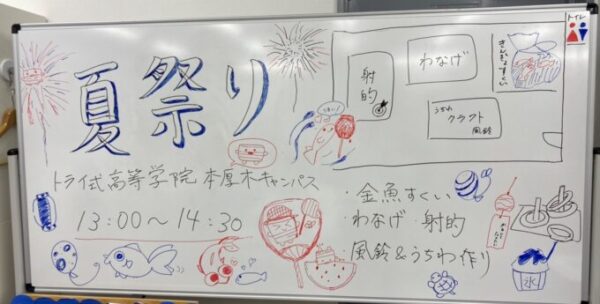 夏祭り
トライ式高等学院 本厚木キャンパス
13:00～14:30
射的
わなげ
きんぎょすくい
うちわ
クラフト
風鈴
トイレ
・金魚すくい
・わなげ・射的
・風鈴&うちわ作り
氷